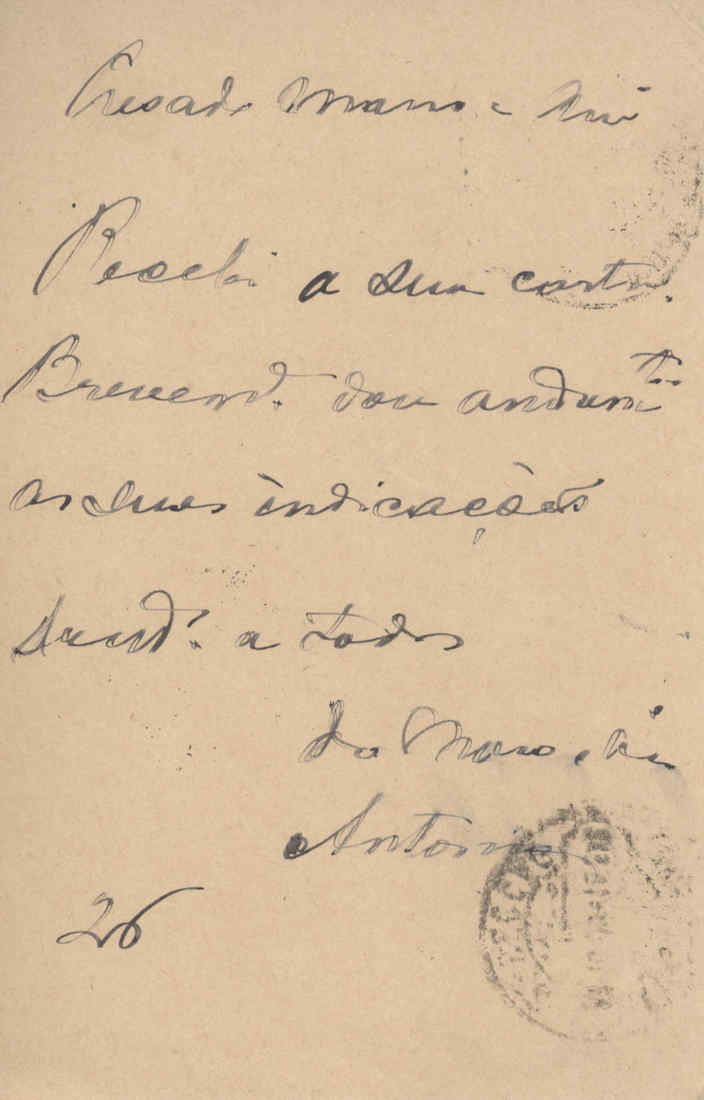 Presado Mano e Am.º
Recebi a sua carta.
Brevem.te dou andam.to
as suas indicações
Saud.s a todos
Do Mano e Am.
Antonio
26
SECÇÃO